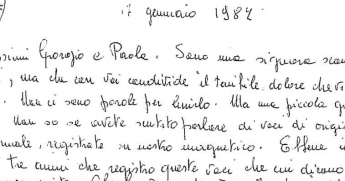 17 gennaio 1987
ssimi Giorgio e Paola. Sono una signora
, ma che con voi condivide il terribile dolore che v
. Non ci sono parole per lenirlo. Ma una piccola
Non so se avete sentito parlare di voci di origi
male, registrate su nastro magnetico. Ebbene
tre anni che registro queste voci che mi dicono